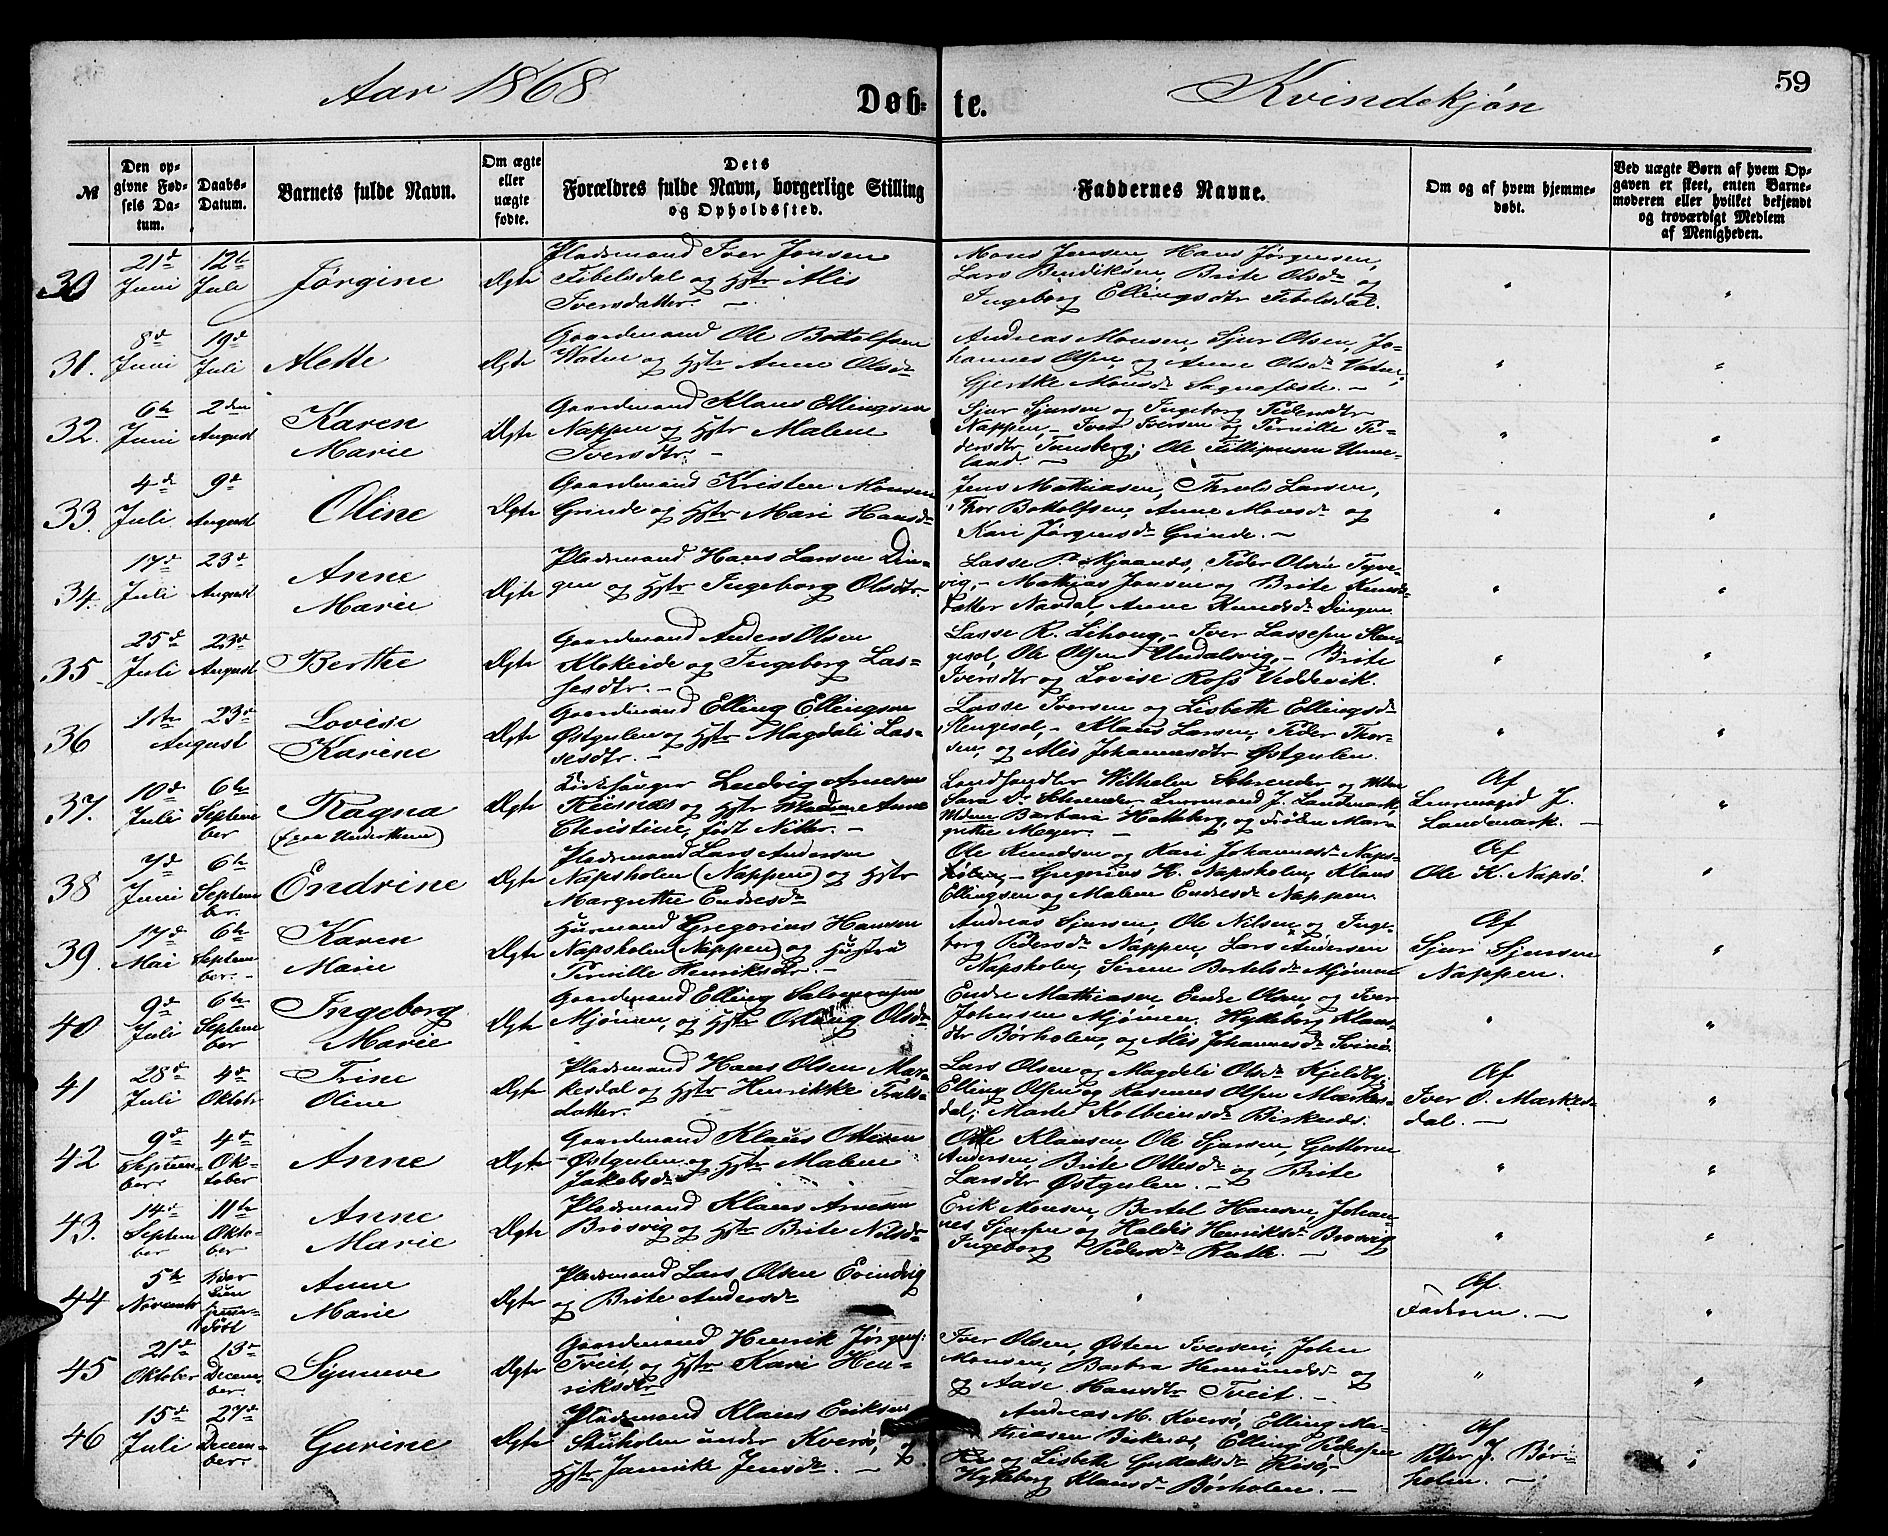 Aar 1868
Døb- te.
Kvindekjøn
59
№
Den op-
givne Fød-
sels Da-
tum.
Daabs-
Datum.
Barnets fulde Navn.
Om ægte
eller
uægte
fødte.
Dets
Forældres fulde Navn, borgerlige Stilling
og Opholdssted.
Faddernes Navne.
Om og af hvem hjemme-
døbt.
Ved uægte Børn af hvem Op-
gaven er skeet, enten Barne-
moderen eller hvilket bekjendt
og troværdigt Medlem
af Menigheden.
30
21de Juni
12te Juli
Jørgine
Ægte
Pladsmand Iver Jonsen
Tibelsdal og Hstr Alis
Iversdatter. —
Mons Jensen, Hans Jørgensen,
Lars Bendiksen, Brite Olsdr og
Ingeborg Ellingsdtr Tibelsdal.
31.
8de Juni
19de Juli
Alette
Ægte
Gaardmand Ole Bottolfsen
Watne og Hstr Anne Olsdr
Andreas Monsen, Sjur Olsen, Jo-
hannes Olsen, og Anne Olsdr Vatne;
Gjertke Monsdr Sognefeste. —
32.
6te Juni
2den August
Karen
Marie
Ægte
Gaardmand Klaus Ellingsen
Nappen og Hstr Malene
Iversdtr. —
Sjur Sjursen og Ingeborg Pedersdtr
Nappen, — Iver Iversen og Pernille Pe-
dersdtr Tunsberg; Ole Fillipusen Unne-
land. —
33.
4de Juli
9de August
Oline
Ægte
Gaardmand Kristen Monsen
Grinde og Hstr Mari Hansdr
Jens Mathiasen, Throls Larsen,
Thor Bottolfsen, Anne Monsdr og
Kari Jørgensdr Grinde. —
34.
17de Juli
23de August
Anne
Marie
Ægte
Pladsmand Hans Larsen Din-
gen og Hstr Ingeborg Olsdtr.
Lasse P. Mjaanes, Peder Olsen
vig, — Mathias Jensen og Brite Knuds-
datter Navdal, Anne Knudsdr Dingen.
35
25de Juli
23de August
Berthe
Ægte
Gaardmand Anders Olsen
Klokeide og Ingeborg Las-
sesdtr. —
Lasse R. Lihoug, — Iver Lassesen Slen-
gesol, Ole Olsen Undalsvig, — Brite
Iversdtr og Lovise Ross Veddevik.
36
1ste August
23de
Lovise
Karine
Ægte
Gaardmand Elling Ellingsen
Østgulen og Hstr Magdeli Las-
sesdtr. —
Lasse Iversen og Lisbeth Ellingsdr
Slengesol, — Klaus Larsen, Peder Thor-
sen, og Alis Johannesdtr Østgulen.
37.
10de Juli
6te Septem
ber
Ragna
Ægte
Kirkesanger Ludvig Arnesen
og Hstr Madme Anne
Christine, født Nitter. —
Landhandler Wilhelm Schreuder og Mdme
Sara Dr Schreuder, Lensmand J. Landmark,
Mdme Barbara Hatteberg, og Frøken Mar-
grethe Meyer. —
Af
J.
Landmark. —
38
7de Juni
6te Septem
ber.
Endrine
Ægte
Pladsmand Lars Andersen
Napsholen (Nappen) og Hstr
Margrethe Endresdr
Ole Knudsen og Kari Johannesdr Naps-
holen, — Gregorius H. Napsholen, Klaus
Ellingsen og Malene Endresdr Nappen.
Af
Ole K. Napsø.
39.
17de Mai
6te Septem
ber. —
Karen
Marie
Ægte
Husmand Gregorius Hansen
Napsholen (Nappen) og Hustru
Pernille Henriksdtr. —
Andreas Sjursen, Ole Nilsen og Inge-
borg Pedersdr Nappen, Lars Andersen
Napsholen, Sirene Bertelsdr Mjømen
Af
Sjur Sjursen
Nappen.
40
9de Juli
6te Septem
ber
Ingeborg
Marie
Ægte
Gaardmand Elling Salomonsen
Mjømen, og Hstr Olsdr
Endre Mathiasen, Endre Olsen, og Iver
Johnsen Mjømen. Hylleborg Klaus-
dtr Børholen, og Alis Johannesdr Svinø.
41
28de Juli
4de Oktobr
Trine
Oline
Ægte
Pladsmand Hans Olsen Mar-
kesdal og Hstr Henrikke Trulsd-
datter.
Lars Olsen og Magdeli Olsdr Kjelby,
Elling Olsen og Rasmus Olsen Markes-
dal; Marte Kolbeinsdr Birknes.
Af
Iver O. Markes-
dal. —
42
9de Septem-
ber
4de Ok-
tober
Anne
Ægte
Gaardmand Klaus Ottesen
Østgulen og Hstr Malene
Jakobsdr
Otte Klausen, Ole Sjursen, Guttorm
Andersen, Brite Ottesdr og Brite
Larsdtr Østgulen. —
43.
14de Septem
ber
11te Okto-
ber
Anne
Marie
Ægte
Pladsmand Klaus Arnesen
Brosvig og Hstr Brite Nilsdr
Erik Monsen, Bertel Hansen, Johan-
nes Sjursen og Haldis Henriksdr Brosvig
Ingeborg Pedersdr —
44
5te Novembr
hjemme-
døbt
Anne
Marie
Ægte
Pladsmand Lars Olsen Evindvig
og Brite Andersdr
Af
Faderen. —
45
21de Oktober
13de Decem-
ber.
Synneve
Ægte
Gaardmand Henrik Jørgens.
Tveit, og Hstr Kari Hen-
riksdtr
Iver Olsen, Østen Iversen, John
Monsen, Barbra Hermundsdr og
og Aase Hansdtr Tveit. —
46
15de Juli
27de Decem-
ber.
Gurine
Ægte
Pladsmand Klaus Eriksen
under Kversø, og
Hstr Jannike Jensdr. —
Andreas M. Kversø, Elling Ma-
thiasen Birknes, Elling Pedersen
og Lisbeth Hisø, —
Hylleborg Klausdr Børholen. —
Af
Peter J. Bør-
holen. —